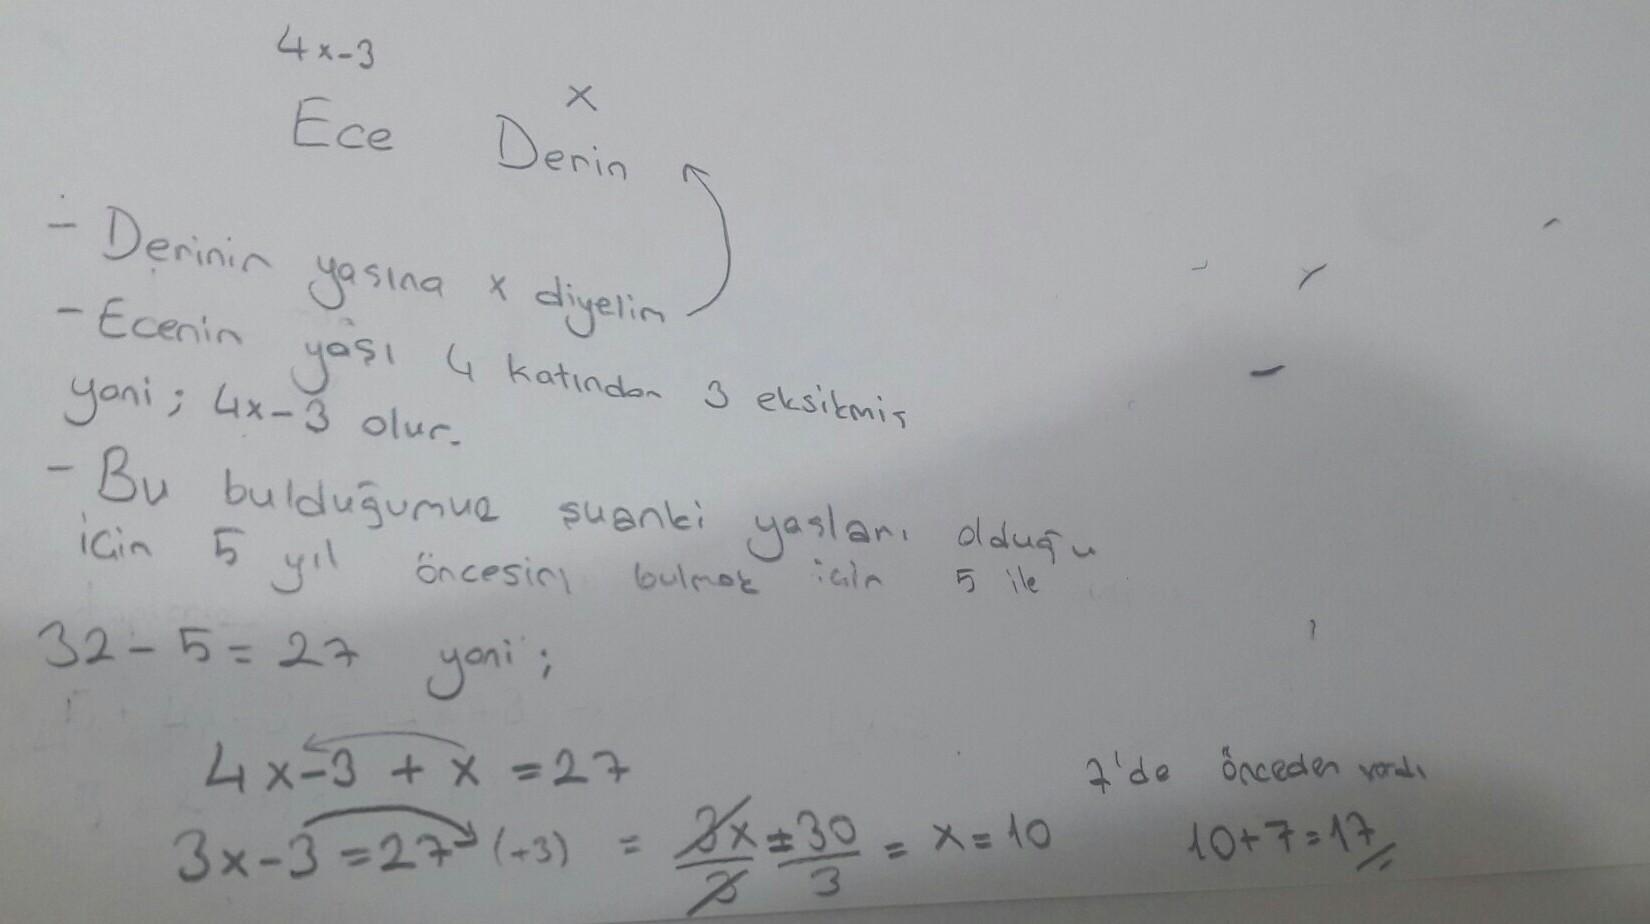 4x-3
x
Ece Derin
- Derinin yaşına x diyelim
- Ecenin yaşı 4 katından 3 eksikmiş
yani; 4x-3 olur.
- Bu bulduğumuz şuanki yaşları olduğu
için 5 yıl öncesini bulmak için 5 ile
32-5=27 yani;
4x-3+x=27
7'de önceden vardı
3x-3=27 (+3) = 3x/3 = 30/3 = x=10 10+7=17